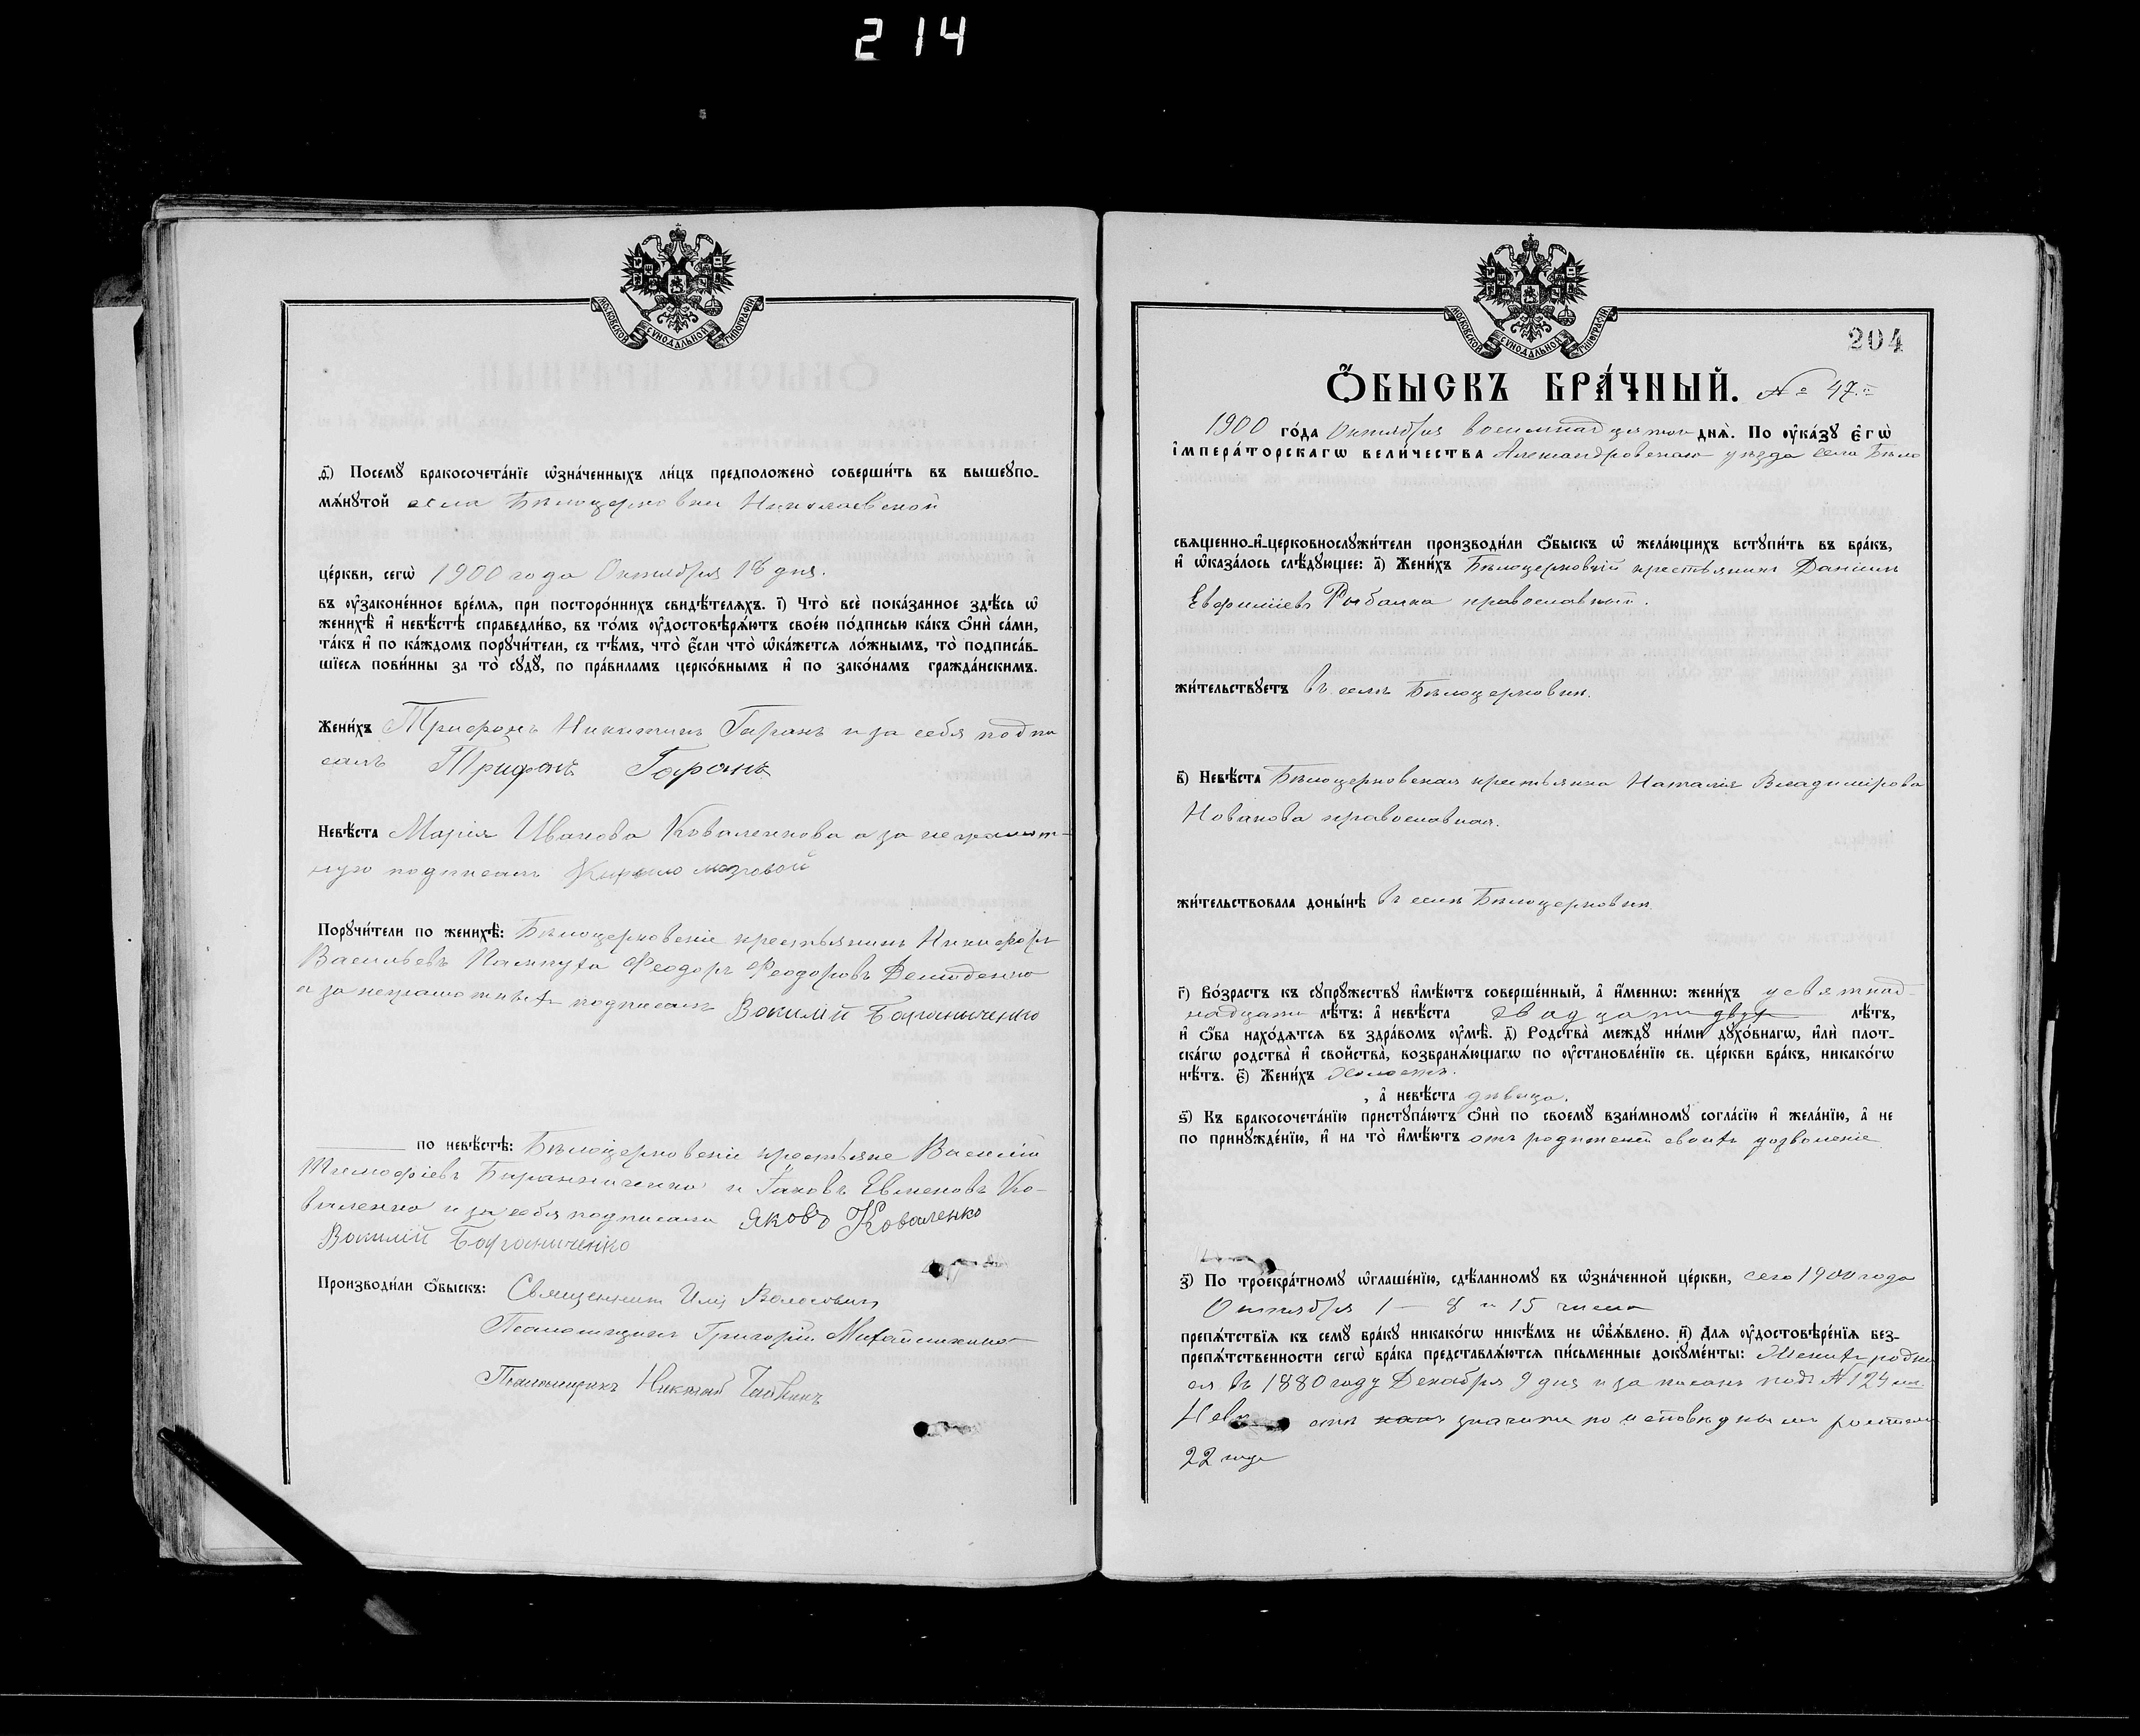 214
МОСКОВСКОЙ СѴНОДАЛЬНОЙ ТИПОГРАФІИ
ѳ҃) Посемꙋ̀ бракосочета́нїе ѡ҆зна́ченныхъ ли́цъ предположено̀ соверши́ть въ вышеꙋпо-
мѧ́нꙋтой села Бѣлоцерковки Николаевской
це́ркви, сегѡ̀ 1900 года Октября 18 дня.
въ ᲂу҆зако́ненное вре́мѧ, при посторо́ннихъ свидѣ́телѧхъ. і҃) Что̀ всѐ пока́занное здѣ́сь ѡ҆
женихѣ̀ и҆ невѣ́стѣ справедли́во, въ то́мъ ᲂу҆достовѣрѧ́ютъ свое́ю по́дписью ка́къ ѻ҆нѝ са́ми,
та́къ и҆ по ка́ждомъ порꙋчи́тели, съ тѣ́мъ, что̀ є҆́сли что̀ ѡ҆ка́жетсѧ ло́жнымъ, то̀ подписа́в-
шїесѧ пови́нны за то̀ сꙋдꙋ̀, по пра́виламъ церко́внымъ и҆ по зако́намъ гражда́нскимъ.
Жени́хъ Трифонъ Никитинъ Гаранъ и за себя подпи
салъ Трифонъ Гаранъ
Невѣ́ста Марія Иванова Коваленкова а за неграмот-
ную подписалъ Кирило
Порꙋчи́тели по женихѣ̀: Бѣлоцерковскіе крестьянинъ Никифоръ
Васильевъ Феодоръ Феодоровъ Демиденко
а за неграмотныхъ подписалъ Василій Бараниченко
по невѣ́стѣ: Бѣлоцерковскіе крестьяне Василій
Тимофіевъ Бараниченко и Яковъ Евменовъ Ко-
валенко и за себя подписали Яковъ Коваленко
Василій Бараниченко
Производи́ли ѻ҆́быскъ: Священникъ Илія Волосовичъ
Псаломщикъ Григорій Михайличенко
Псаломщикъ Николай
МОСКОВСКОЙ СѴНОДАЛЬНОЙ ТИПОГРАФІИ
204
Ѻ҆́БЫСКЪ БРА́ЧНЫЙ. № 47й
1900 го́да Октября восемнадцатого днѧ̀. По ᲂу҆ка́зꙋ є҆гѡ̀
і҆мпера́торскагѡ вели́чества Александровскаго уѣзда села Бѣло
свѧще́нно-и҆-церковнослꙋжи́тели производи́ли ѻ҆́быскъ ѡ҆ жела́ющихъ встꙋпи́ть въ бра́къ,
и҆ ѡ҆каза́лось слѣ́дꙋющее: а҃) Жени́хъ Бѣлоцерковскій крестьянинъ Даніилъ
Евфиміевъ Рыбалка православный.
жи́тельствꙋетъ въ селѣ Бѣлоцерковки.
в҃) Невѣ́ста Бѣлоцерковская крестьянка Наталія Владимірова
Новакова православная.
жи́тельствовала доны́нѣ въ селѣ Бѣлоцерковки
г҃) Во́зрастъ къ сꙋпрꙋ́жествꙋ и҆мѣ́ютъ соверше́нный, а҆ и҆́меннѡ: жени́хъ девятнад-
надцати лѣ́тъ: а҆ невѣ́ста двадцатидвух лѣ́тъ,
и҆ ѻ҆́ба нахо́дѧтсѧ въ здра́вомъ ᲂу҆мѣ̀. д҃) Родства̀ междꙋ̀ ни́ми дꙋхо́внагѡ, и҆лѝ плот-
ска́гѡ родства̀ и҆ сво́йства, возбранѧ́ющагѡ по ᲂу҆становле́нїю св. це́ркви бра́къ, никако́гѡ
нѣ́тъ. є҃) Жени́хъ холостъ.
, а҆ невѣ́ста дѣвица.
ѕ҃) Къ бракосочета́нїю пристꙋпа́ютъ ѻ҆нѝ по своемꙋ̀ взаи́мномꙋ согла́сїю и҆ жела́нїю, а҆ не
по принꙋжде́нїю, и҆ на то̀ и҆мѣ́ютъ отъ родителей своихъ дозволеніе
з҃) По троекра́тномꙋ ѡ҆глаше́нїю, сдѣ́ланномꙋ въ ѡ҆зна́ченной це́ркви, сего 1900 года
Октября 1 – 8 и 15 числа
препѧ́тствїѧ къ семꙋ̀ бра́кꙋ никако́гѡ никѣ́мъ не ѡ҆б̾ѧ́влено. и҃) Длѧ ᲂу҆достовѣре́нїѧ без-
препѧ́тственности сегѡ̀ бра́ка представлѧ́ютсѧ пи́сьменные докꙋме́нты: Женихъ родил
ся въ 1880 году Декабря 9 дня и записанъ подъ № 124
значится по исповѣднымъ росписям
22 года